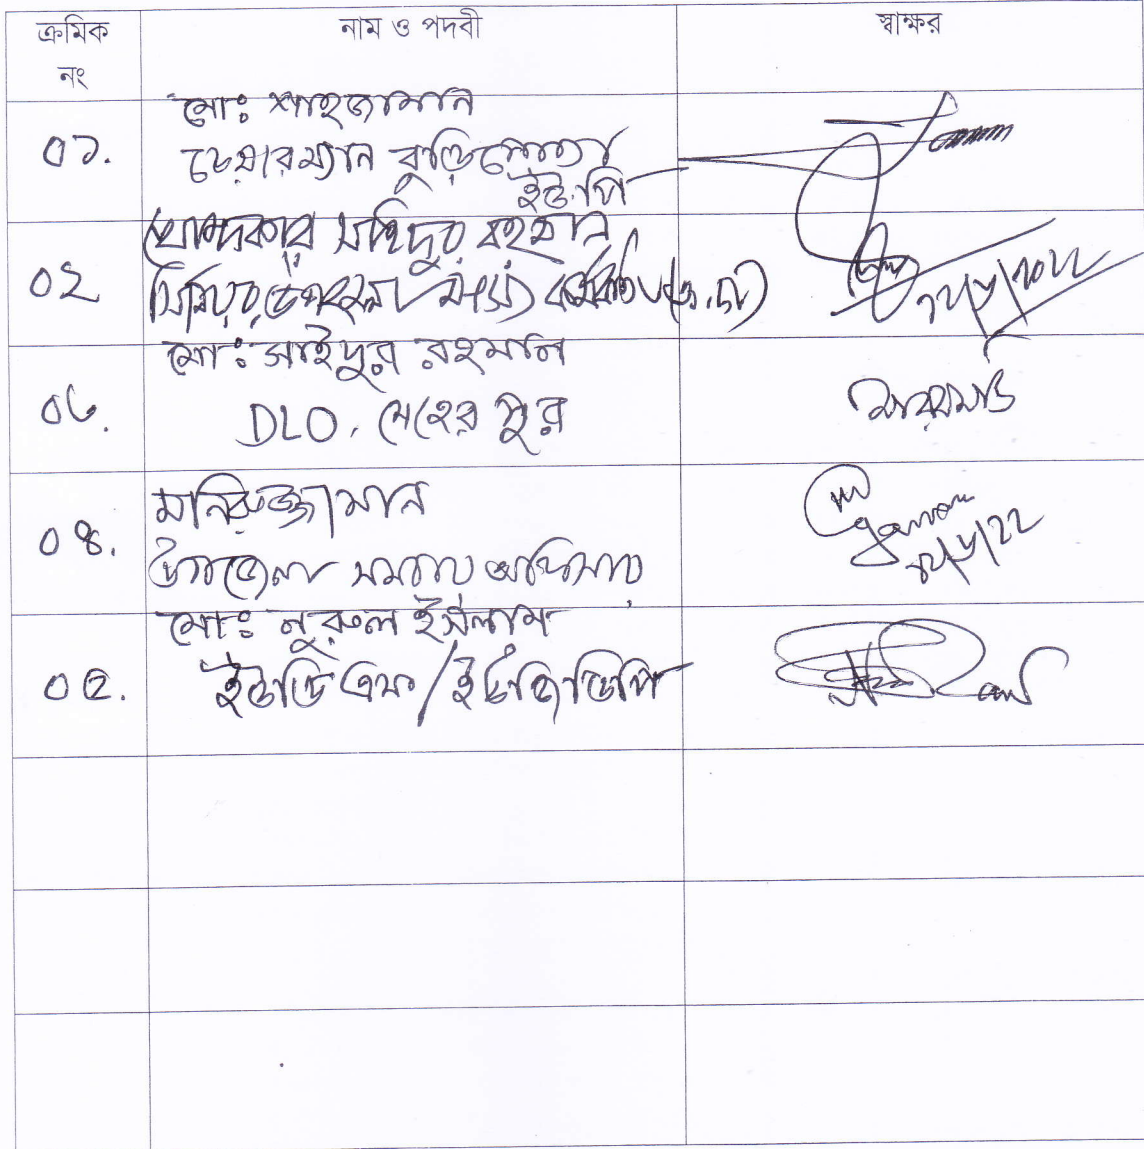 ক্রমিক নং নাম ও পদবী স্বাক্ষর
০১. মোঃ শাহজামান
চেয়ারম্যান বুড়িপোতা
ইউপি
০২ খোন্দকার সহিদুর রহমান
সিনিয়র উপজেলা মৎস্য কর্মকর্তা
০৩. মোঃ সাইদুর রহমান
DLO, মেহেরপুর
০৪. মনিরুজ্জামান
উপজেলা সমবায় অফিসার
০৫. মোঃ নুরুল ইসলাম
ইউডিএফ/ইউজিডিপি